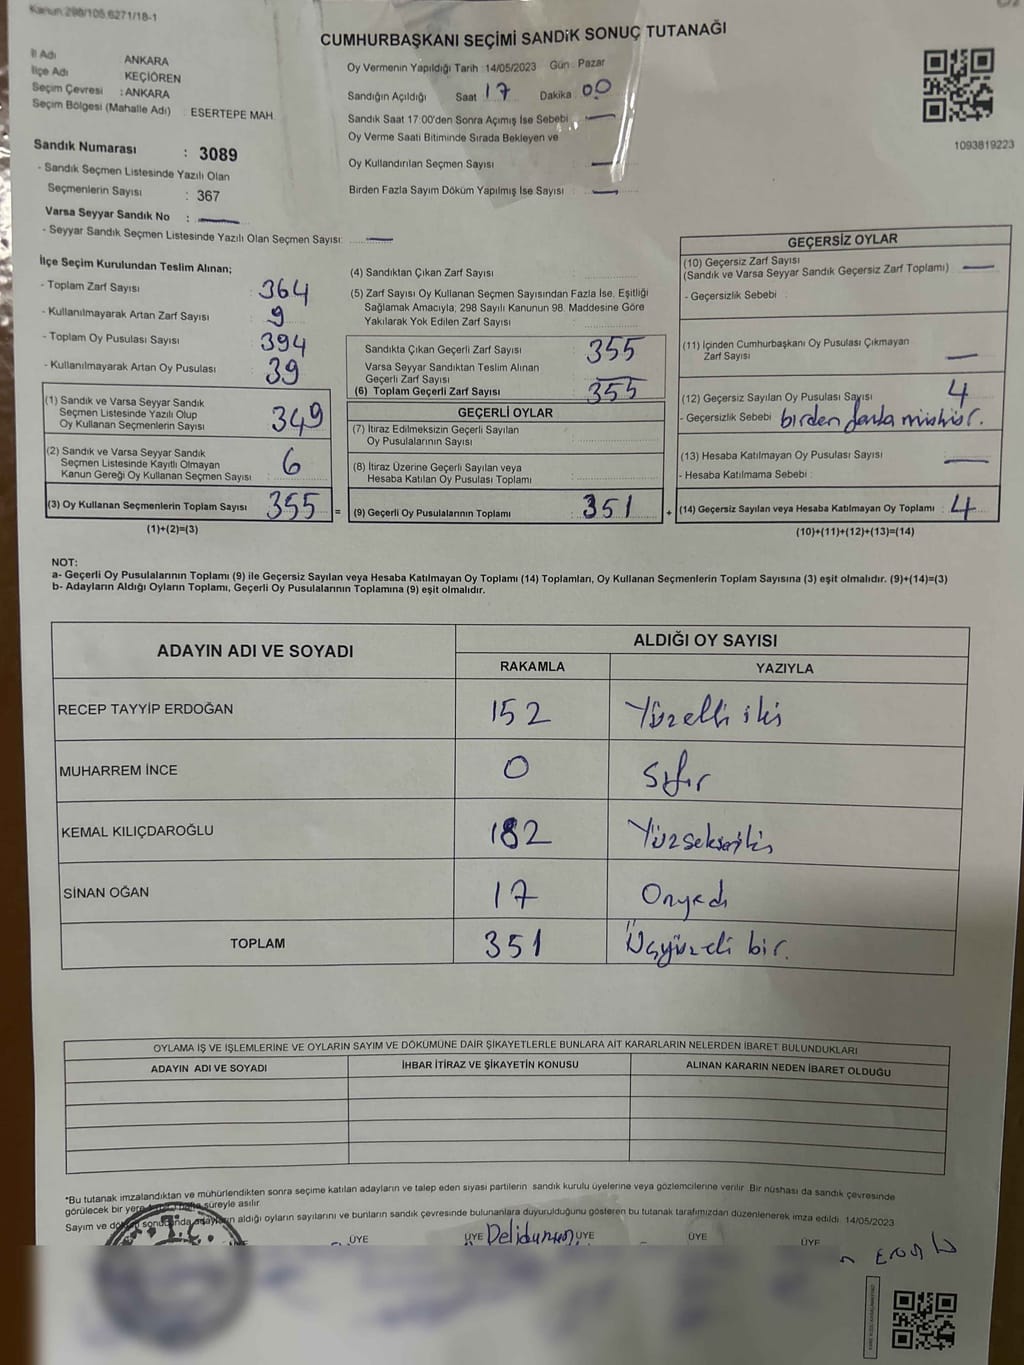 Kanun:298/105,6271/18-1
CUMHURBAŞKANI SEÇİMİ SANDIK SONUÇ TUTANAĞI
İl Adı ANKARA
İlçe Adı KEÇİÖREN
Seçim Çevresi : ANKARA
Seçim Bölgesi (Mahalle Adı) : ESERTEPE MAH.
Sandık Numarası : 3089
- Sandık Seçmen Listesinde Yazılı Olan
Seçmenlerin Sayısı : 367
Varsa Seyyar Sandık No : —
- Seyyar Sandık Seçmen Listesinde Yazılı Olan Seçmen Sayısı: —
Oy Vermenin Yapıldığı Tarih : 14/05/2023 Gün : Pazar
Sandığın Açıldığı Saat 17 Dakika 00
Sandık Saat 17:00'den Sonra Açımış İse Sebebi : —
Oy Verme Saati Bitiminde Sırada Bekleyen ve
Oy Kullandırılan Seçmen Sayısı : —
Birden Fazla Sayım Döküm Yapılmış İse Sayısı : —
1093819223
İlçe Seçim Kurulundan Teslim Alınan;
- Toplam Zarf Sayısı : 364
- Kullanılmayarak Artan Zarf Sayısı : 9
- Toplam Oy Pusulası Sayısı : 394
- Kullanılmayarak Artan Oy Pusulası : 39
(1) Sandık ve Varsa Seyyar Sandık
Seçmen Listesinde Yazılı Olup
Oy Kullanan Seçmenlerin Sayısı : 349
(2) Sandık ve Varsa Seyyar Sandık
Seçmen Listesinde Kayıtlı Olmayan
Kanun Gereği Oy Kullanan Seçmen Sayısı : 6
(3) Oy Kullanan Seçmenlerin Toplam Sayısı : 355 =
(1)+(2)=(3)
(4) Sandıktan Çıkan Zarf Sayısı :
(5) Zarf Sayısı Oy Kullanan Seçmen Sayısından Fazla İse, Eşitliği
Sağlamak Amacıyla, 298 Sayılı Kanunun 98. Maddesine Göre
Yakılarak Yok Edilen Zarf Sayısı :
Sandıkta Çıkan Geçerli Zarf Sayısı : 355
Varsa Seyyar Sandıktan Teslim Alınan
Geçerli Zarf Sayısı : —
(6) Toplam Geçerli Zarf Sayısı : 355
GEÇERLİ OYLAR
(7) İtiraz Edilmeksizin Geçerli Sayılan
Oy Pusulalarının Sayısı :
(8) İtiraz Üzerine Geçerli Sayılan veya
Hesaba Katılan Oy Pusulası Toplamı :
(9) Geçerli Oy Pusulalarının Toplamı : 351 +
GEÇERSİZ OYLAR
(10) Geçersiz Zarf Sayısı
(Sandık ve Varsa Seyyar Sandık Geçersiz Zarf Toplamı) : —
- Geçersizlik Sebebi :
(11) İçinden Cumhurbaşkanı Oy Pusulası Çıkmayan
Zarf Sayısı : —
(12) Geçersiz Sayılan Oy Pusulası Sayısı : 4
- Geçersizlik Sebebi : birden fazla mühür.
(13) Hesaba Katılmayan Oy Pusulası Sayısı : —
- Hesaba Katılmama Sebebi :
(14) Geçersiz Sayılan veya Hesaba Katılmayan Oy Toplamı : 4
(10)+(11)+(12)+(13)=(14)
NOT:
a- Geçerli Oy Pusulalarının Toplamı (9) ile Geçersiz Sayılan veya Hesaba Katılmayan Oy Toplamı (14) Toplamları, Oy Kullanan Seçmenlerin Toplam Sayısına (3) eşit olmalıdır. (9)+(14)=(3)
b- Adayların Aldığı Oyların Toplamı, Geçerli Oy Pusulalarının Toplamına (9) eşit olmalıdır.
ADAYIN ADI VE SOYADI ALDIĞI OY SAYISI
RAKAMLA YAZIYLA
RECEP TAYYİP ERDOĞAN 152 Yüzelli iki
MUHARREM İNCE 0 Sıfır
KEMAL KILIÇDAROĞLU 182 Yüzsekseniki
SİNAN OĞAN 17 Onyedi
TOPLAM 351 Üçyüzelli bir.
OYLAMA İŞ VE İŞLEMLERİNE VE OYLARIN SAYIM VE DÖKÜMÜNE DAİR ŞİKAYETLERLE BUNLARA AİT KARARLARIN NELERDEN İBARET BULUNDUKLARI
ADAYIN ADI VE SOYADI İHBAR İTİRAZ VE ŞİKAYETİN KONUSU ALINAN KARARIN NEDEN İBARET OLDUĞU
*Bu tutanak imzalandıktan ve mühürlendikten sonra seçime katılan adayların ve talep eden siyasi partilerin sandık kurulu üyelerine veya gözlemcilerine verilir. Bir nüshası da sandık çevresinde
görülecek bir yere bir hafta süreyle asılır.
Sayım ve döküm sonucunda adayların aldığı oyların sayılarını ve bunların sandık çevresinde bulunanlara duyurulduğunu gösteren bu tutanak tarafımızdan düzenlenerek imza edildi. 14/05/2023
T.C.
ÜYE ÜYE ÜYE ÜYE ÜYE